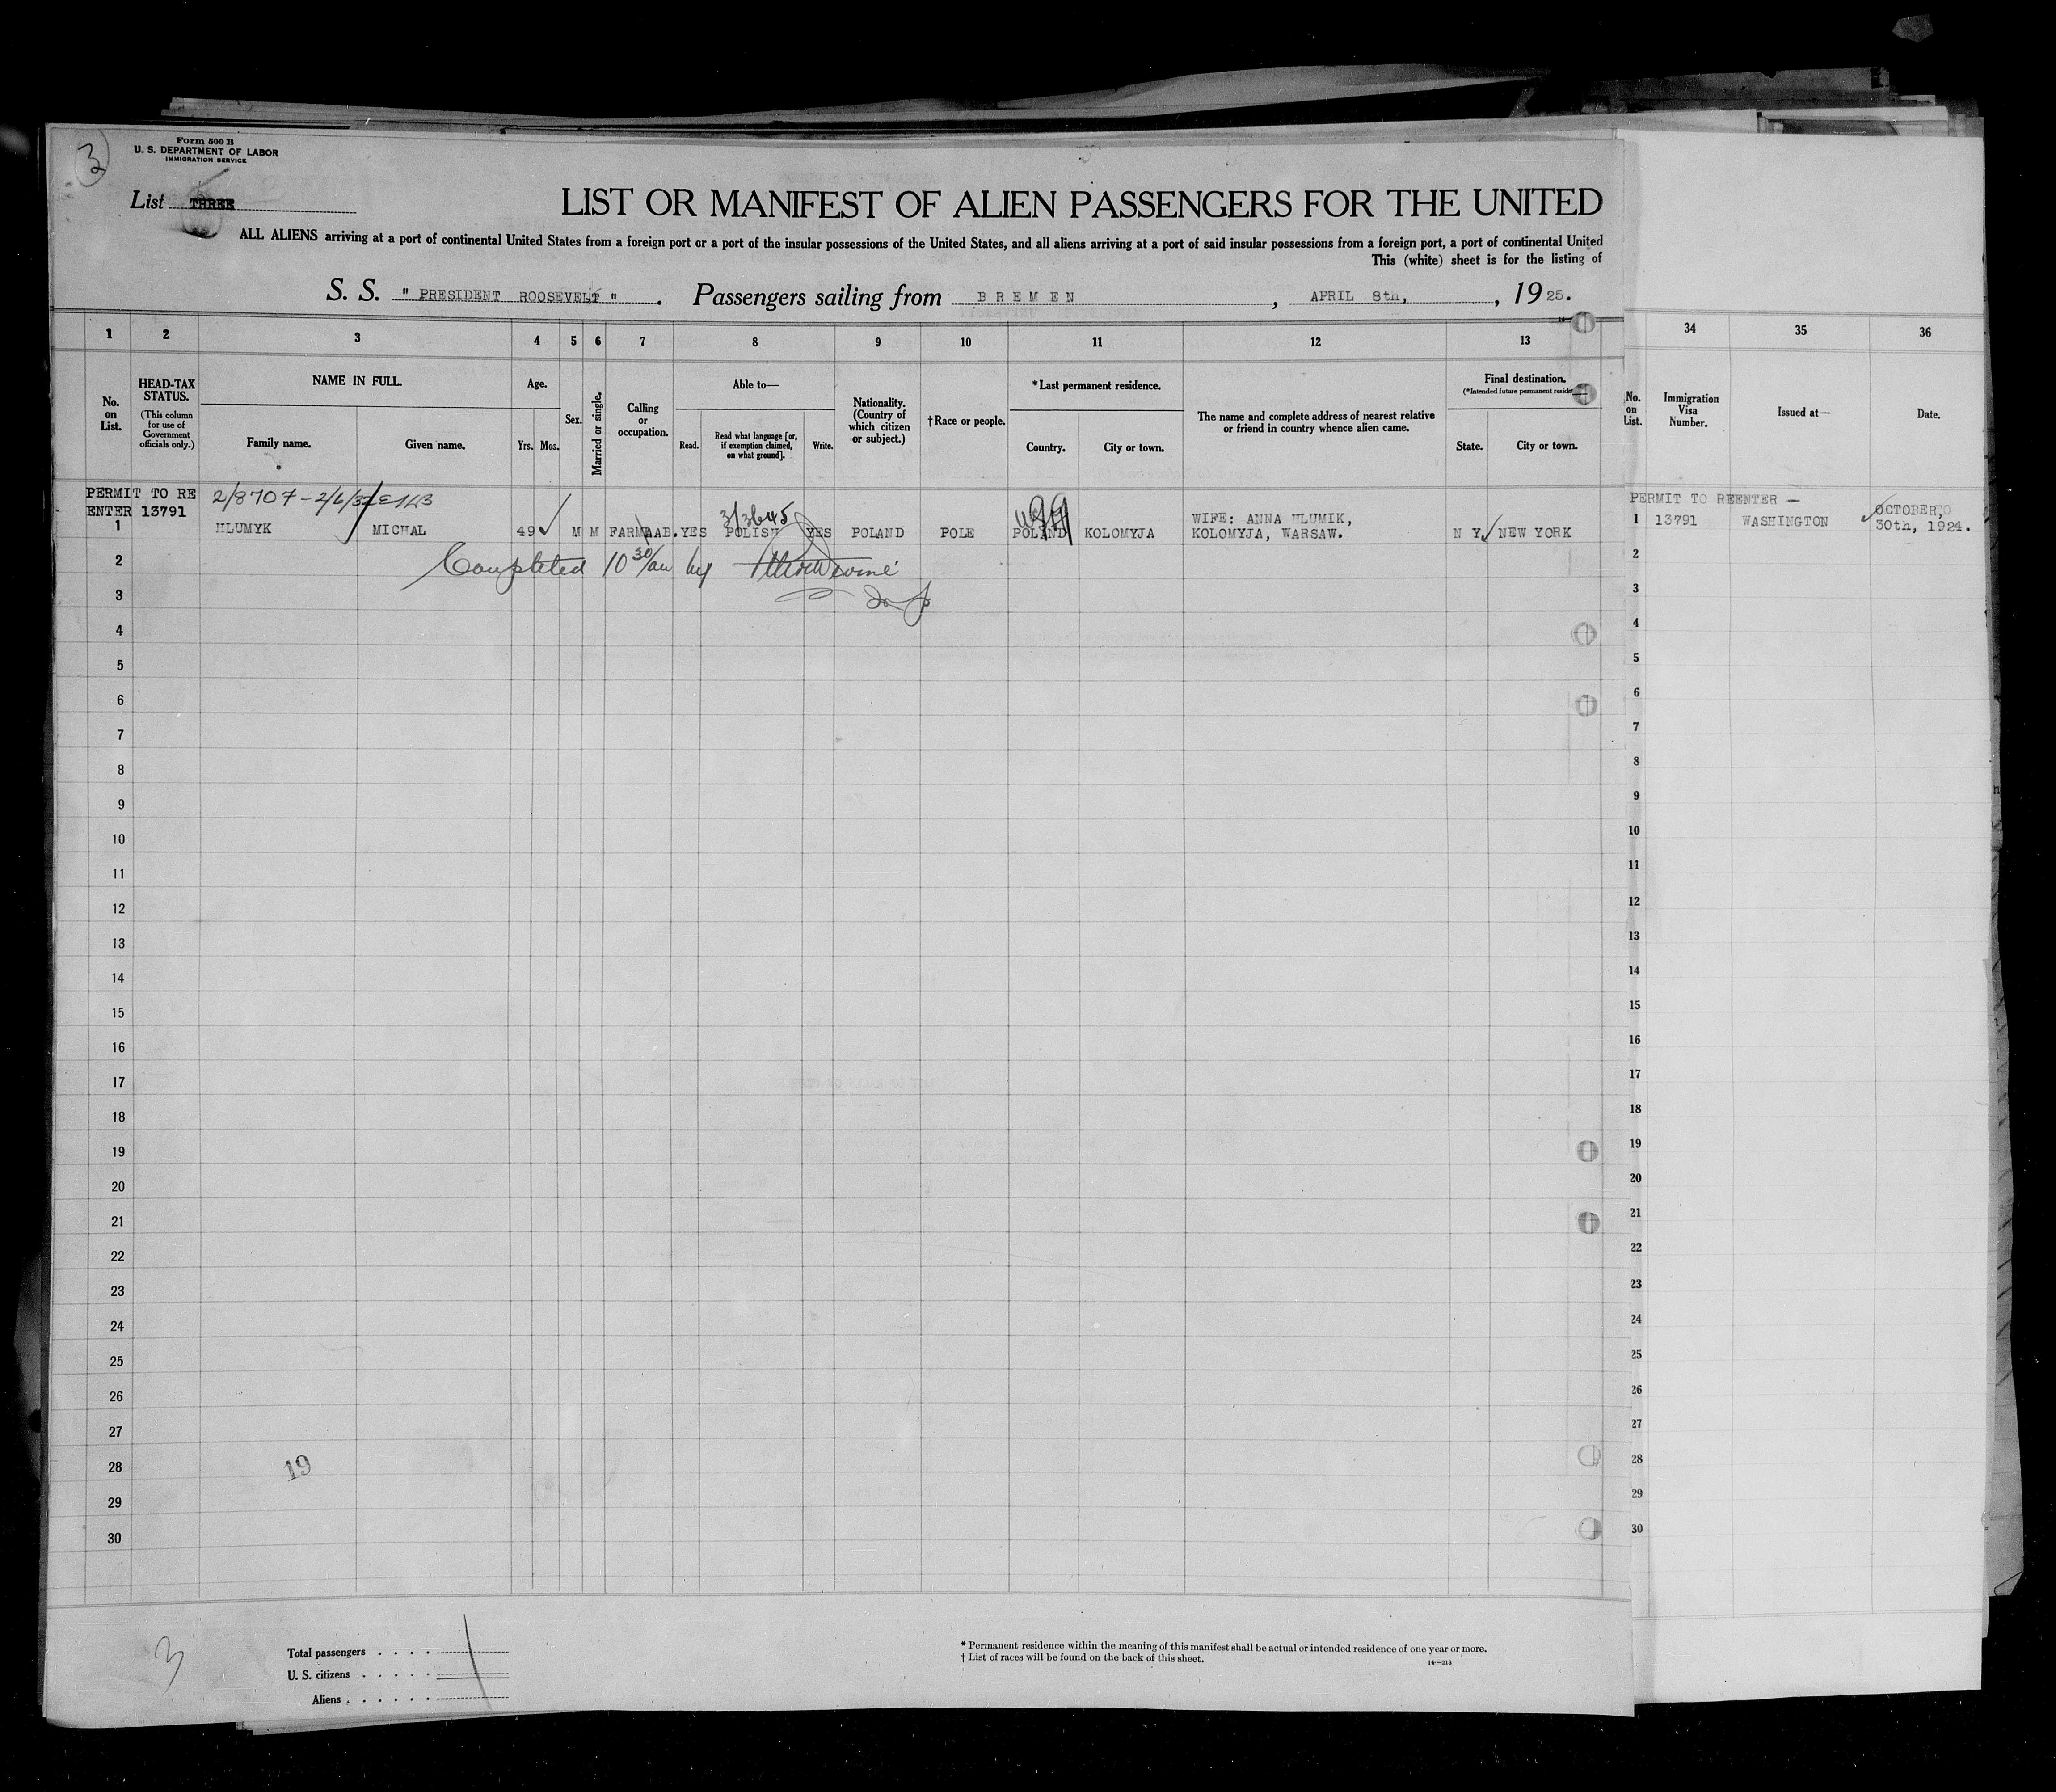 3
Form 500 B
U. S. DEPARTMENT OF LABOR
IMMIGRATION SERVICE
List THREE
LIST OR MANIFEST OF ALIEN PASSENGERS FOR THE UNITED
ALL ALIENS arriving at a port of continental United States from a foreign port or a port of the insular possessions of the United States, and all aliens arriving at a port of said insular possessions from a foreign port, a port of continental United
This (white) sheet is for the listing of
S. S. " PRESIDENT ROOSEVELT " . Passengers sailing from BREMEN , APRIL 8th, , 1925.
1 2 3 4 5 6 7 8 9 10 11 12 13 34 35 36
No. on List.
HEAD-TAX STATUS.
(This column for use of Government officials only.)
NAME IN FULL.
Family name. Given name.
Age.
Yrs. Mos.
Sex.
Married or single.
Calling or occupation.
Able to—
Read. Read what language [or, if exemption claimed, on what ground]. Write.
Nationality. (Country of which citizen or subject.)
†Race or people.
*Last permanent residence.
Country. City or town.
The name and complete address of nearest relative or friend in country whence alien came.
Final destination.
(*Intended future permanent
State. City or town.
No. on List.
Immigration Visa Number.
Issued at—
Date.
PERMIT TO RE
ENTER 13791
2/8707-2/6/32
3/3645
1 HLUMYK MICHAL 49 M M FARM YES POLISH YES POLAND POLE POLAND KOLOMYJA WIFE: ANNA HLUMIK, KOLOMYJA, WARSAW. N Y NEW YORK
PERMIT TO REENTER —
1 13791 WASHINGTON OCTOBER, 30th, 1924.
Completed 10 30/am by
2 2
3 3
4 4
5 5
6 6
7 7
8 8
9 9
10 10
11 11
12 12
13 13
14 14
15 15
16 16
17 17
18 18
19 19
20 20
21 21
22 22
23 23
24 24
25 25
26 26
27 27
28 19 28
29 29
30 30
3
Total passengers . . . .
U. S. citizens . . . . .
Aliens . . . . . .
* Permanent residence within the meaning of this manifest shall be actual or intended residence of one year or more.
† List of races will be found on the back of this sheet.
14—213